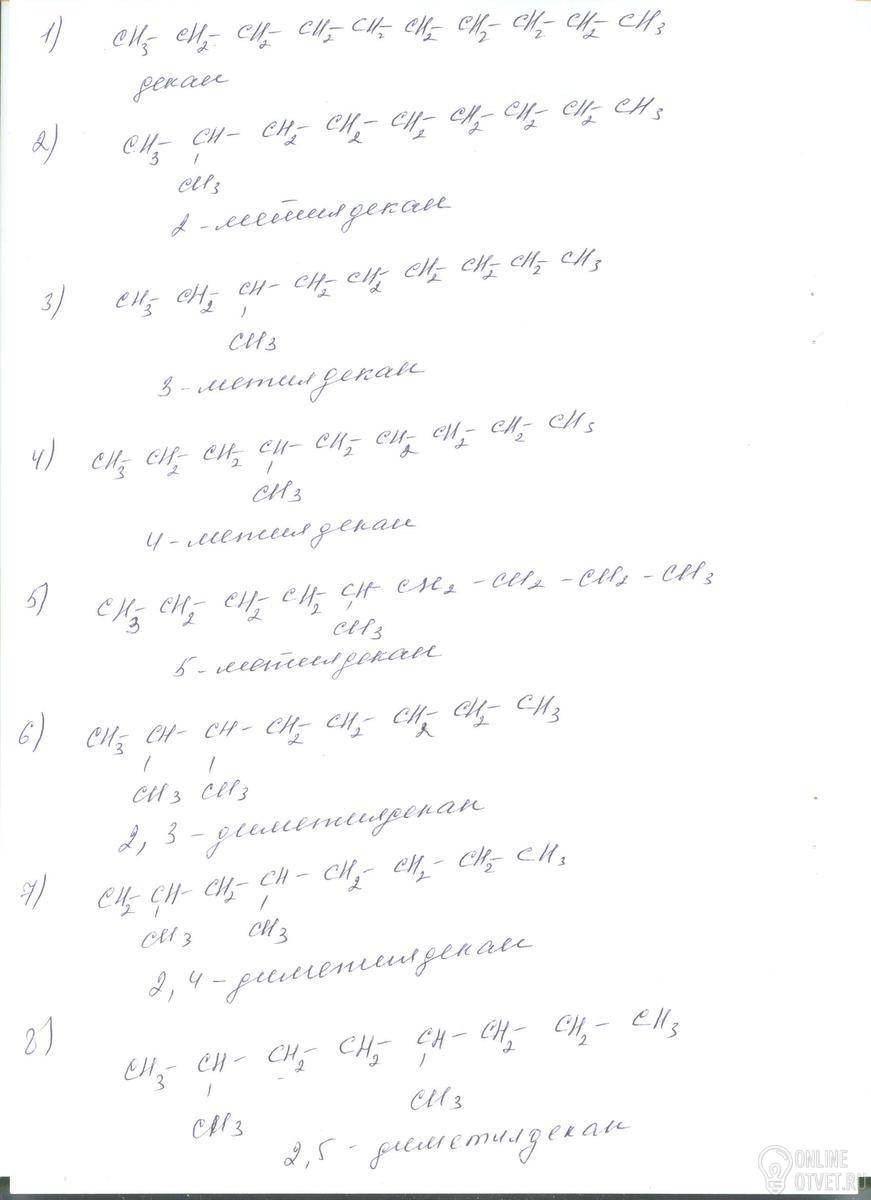 1) CH3- CH2- CH2- CH2- CH2- CH2- CH2- CH2- CH2- CH3
декан
2) CH3- CH- CH2- CH2- CH2- CH2- CH2- CH2- CH3
CH3
2-метилдекан
3) CH3- CH2- CH- CH2- CH2- CH2- CH2- CH2- CH3
CH3
3-метилдекан
4) CH3- CH2- CH2- CH- CH2- CH2- CH2- CH2- CH3
CH3
4-метилдекан
5) CH3- CH2- CH2- CH2- CH- CH2 - CH2 - CH2 - CH3
CH3
5-метилдекан
6) CH3- CH- CH- CH2- CH2- CH2- CH2- CH3
CH3 CH3
2, 3-диметилдекан
7) CH2- CH- CH2- CH- CH2- CH2- CH2- CH3
CH3 CH3
2,4-диметилдекан
8) CH3- CH- CH2- CH2- CH- CH2- CH2- CH3
CH3 CH3
2,5-диметилдекан
ONLINE
OTVET.RU